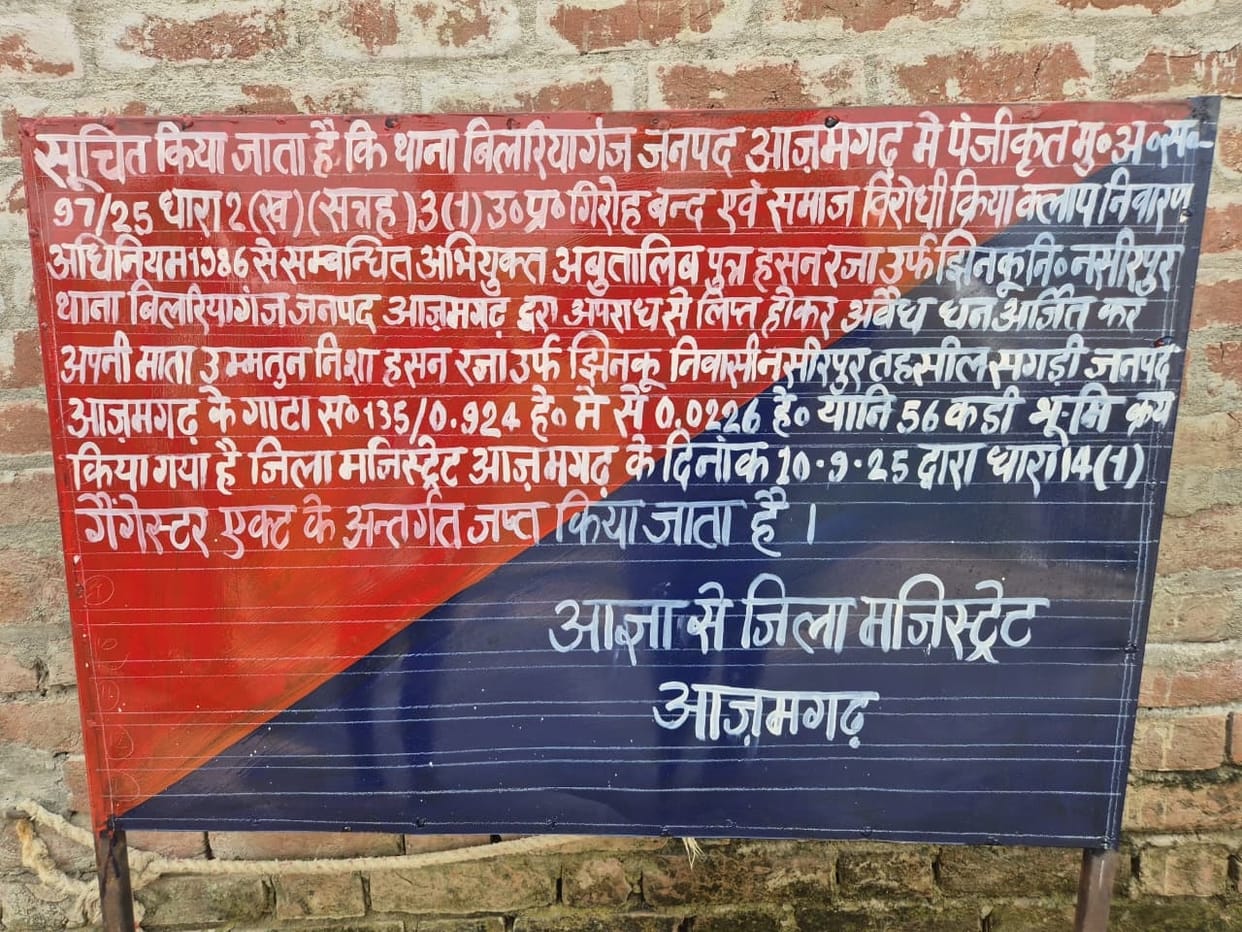 सूचित किया जाता है कि थाना बिलरियागंज जनपद आज़मगढ़ मे पंजीकृत मु० अ० स०-
97/25 धारा 2 (ख) (सत्रह) 3 (1) उ० प्र० गिरोह बन्द एवं समाज विरोधी क्रिया क्लाप निवारण
अधिनियम 1986 से सम्बन्धित अभियुक्त अबुतालिब पुत्र हसन रजा उर्फ झिनकू नि० नसीरपुर
थाना बिलरियागंज जनपद आज़मगढ़ द्वारा अपराध से लिप्त होकर अवैध धन अर्जित कर
अपनी माता उम्मतुन निशा हसन रजा उर्फ झिनकू निवासी नसीरपुर तहसील सगड़ी जनपद
आज़मगढ़ के गाटा स० 135/0.924 हे० मे से 0.0226 हे० यानि 56 कडी भू-मि क्रय
किया गया है जिला मजिस्ट्रेट आज़मगढ़ के दिनांक 20.9.25 द्वारा धारा 14 (1)
गैंगेस्टर एक्ट के अन्तर्गत जप्त किया जाता है ।
आज्ञा से जिला मजिस्ट्रेट
आज़मगढ़